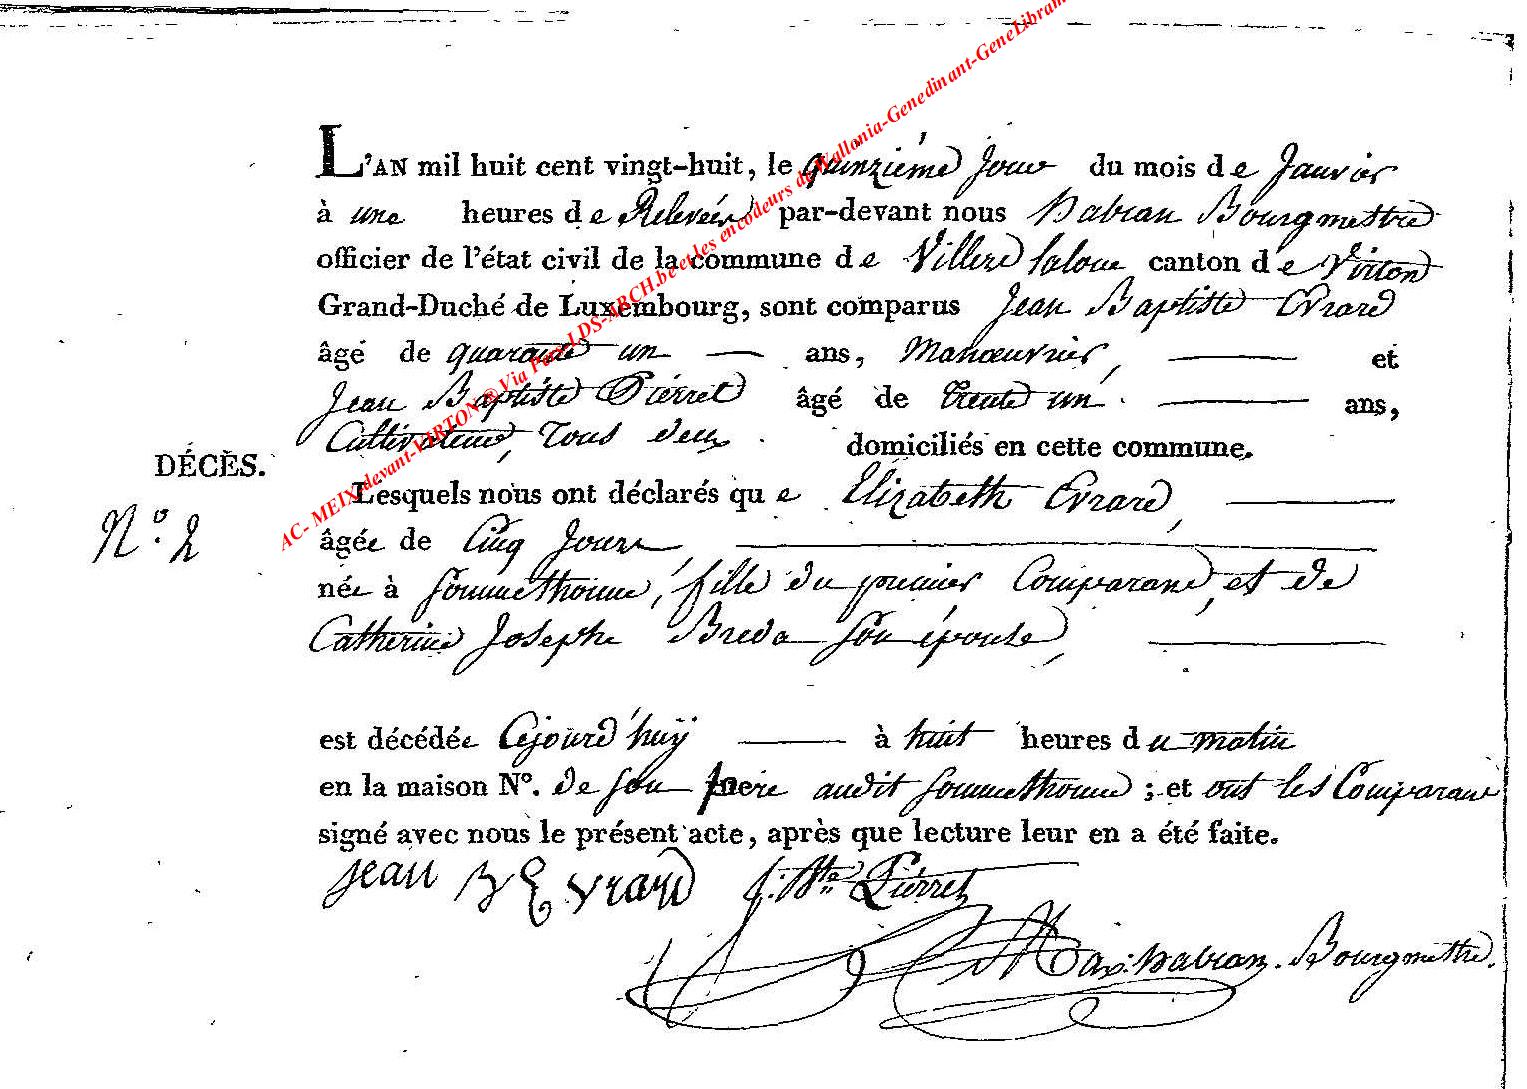 AC- MEIX-devant-VIRTON ® Via Parc-LDS-ARCH.be et les encodeurs de Wallonia-Genedinant-GeneLibram
L'AN mil huit cent vingt-huit, le quinziéme Jour du mois de Janvier
à une heures de Relevée par-devant nous habran Bourgmestre
officier de l'état civil de la commune de Villers laloue canton de Virton
Grand-Duché de Luxembourg, sont comparus Jean Baptiste Evrard
âgé de quarante un — ans, Manœuvrier, — et
Jean Baptiste Piérret âgé de trente un — ans,
Cultivateur, tous deux domiciliés en cette commune.
DÉCÈS.
N.° 2
Lesquels nous ont déclarés que Elizabeth Evrard, —
âgée de Cinq Jours, —
née à Sommethonne, fille du premier Comparant, et de
Catherine Josephe Breda son épouse, —
est décédée Cejourd'huÿ — à huit heures du matin
en la maison N°. de son pere audit Sommethonne ; et ont les Comparant
signé avec nous le présent acte, après que lecture leur en a été faite.
jean B Evrard J. Bte Piérret
Max: habran. Bourgmestre.